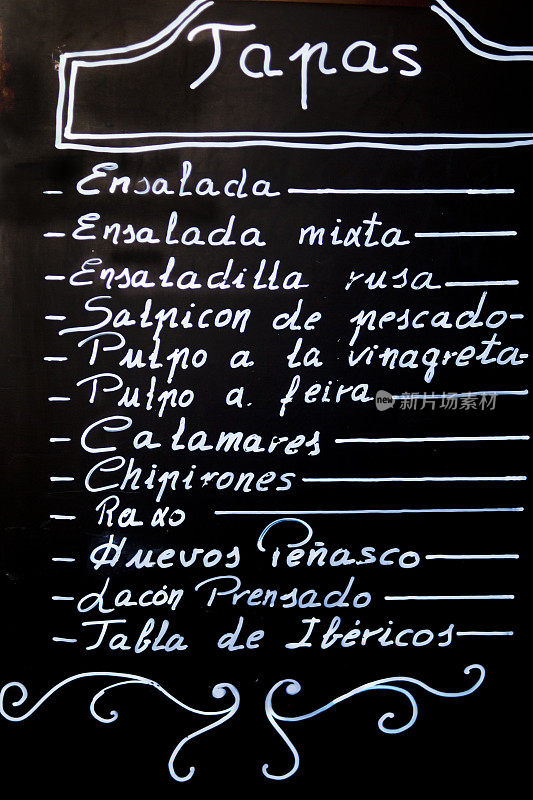 Tapas
- Ensalada
- Ensalada mixta
- Ensaladilla rusa
- Salpicon de pescado-
- Pulpo a la vinagreta-
- Pulpo a feira
new 新片场素材
- Calamares
- Chipirones
- Raxo
- Huevos Peñasco
- Lacón Prensado
- Tabla de Ibéricos